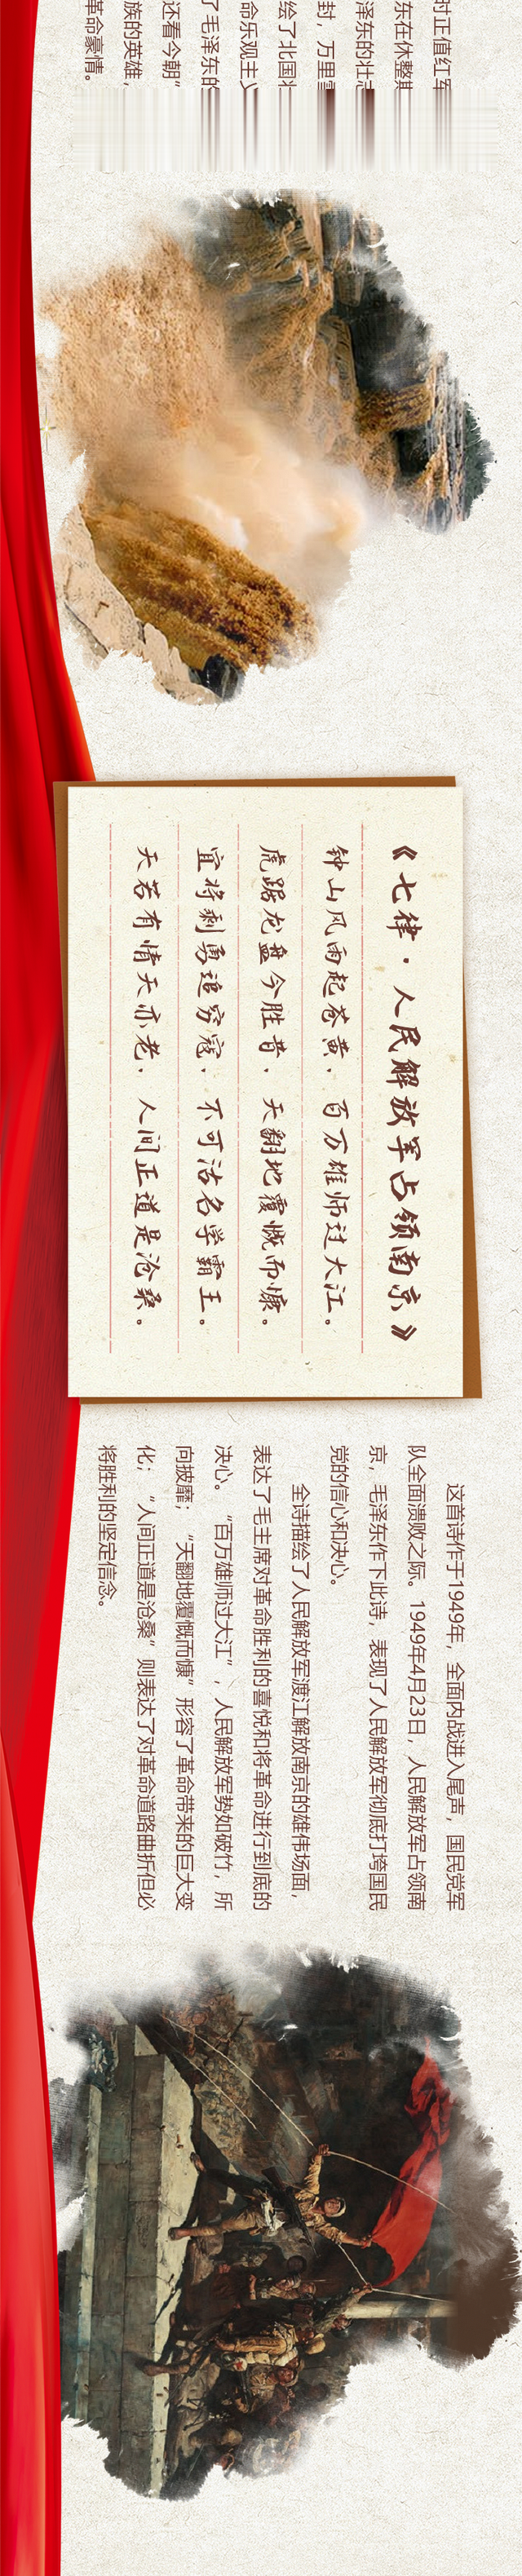 时正值红军
东在休整其
泽东的壮志
封，万里雪
绘了北国壮
命乐观主义
了毛泽东的
还看今朝”
族的英雄，
革命豪情。
《七律·人民解放军占领南京》
钟山风雨起苍黄，百万雄师过大江。
虎踞龙盘今胜昔，天翻地覆慨而慷。
宜将剩勇追穷寇，不可沽名学霸王。
天若有情天亦老，人间正道是沧桑。
这首诗作于1949年，全面内战进入尾声，国民党军
队全面溃败之际。1949年4月23日，人民解放军占领南
京，毛泽东作下此诗，表现了人民解放军彻底打垮国民
党的信心和决心。
全诗描绘了人民解放军渡江解放南京的雄伟场面，
表达了毛主席对革命胜利的喜悦和将革命进行到底的
决心。“百万雄师过大江”，人民解放军势如破竹，所
向披靡；“天翻地覆慨而慷”形容了革命带来的巨大变
化；“人间正道是沧桑”则表达了对革命道路曲折但必
将胜利的坚定信念。